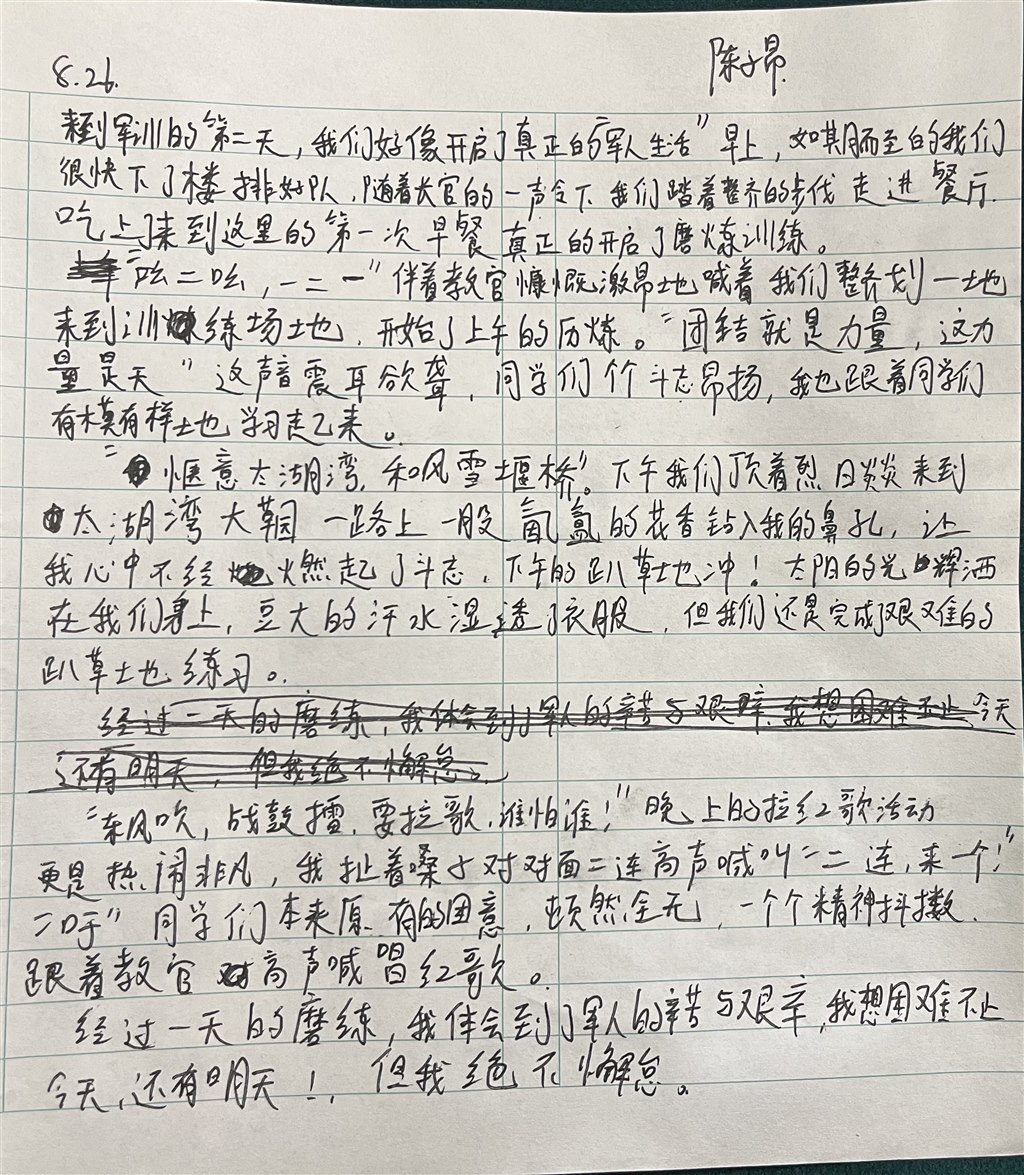 8.26.
陈子昂
来到军训的第二天，我们好像开启了真正的“军人生活”早上，如其肺至的我们
很快下了楼排好队，随着长官的一声令下我们踏着整齐的步伐走进餐厅.
吃上了来到这里的第一次早餐真正的开启了磨炼训练。
“吆二吆，一二一”伴着教官慷慨激昂地喊着我们整齐划一地
来到训练场土地，开始了上午的历炼。“团结就是力量，这力
量是天”这声音震耳欲聋，同学们个个斗志昂扬，我也跟着同学们
有模有样土地学习走乙来。
“惬意太湖湾，和风雪堰桥”。下午我们顶着烈日炎炎来到
太湖湾大草园一路上一股氤氲的花香钻入我的鼻孔，让
我心中不经燃起了斗志，下午的趴草地冲！太阳的光辉洒
在我们身上，豆大的汗水湿透了衣服，但我们还是完成了艰难的
趴草土地练习。
经过一天的磨练，我体会到了军人的辛苦与艰辛，我想困难不止今天
还有明天，但我绝不懈怠。
“东风吹，战鼓擂，要拉歌，谁怕谁！”晚上的拉红歌活动
更是热闹非凡，我扯着嗓子对对面二连高声喊叫“二连，来一个！”
“呼”同学们本来原有的困意，顿然全无，一个个精神抖擞.
跟着教官高声喊唱红歌。
经过一天的磨练，我体会到了军人的辛苦与艰辛，我想困难不止
今天，还有明天！，但我绝不懈怠。